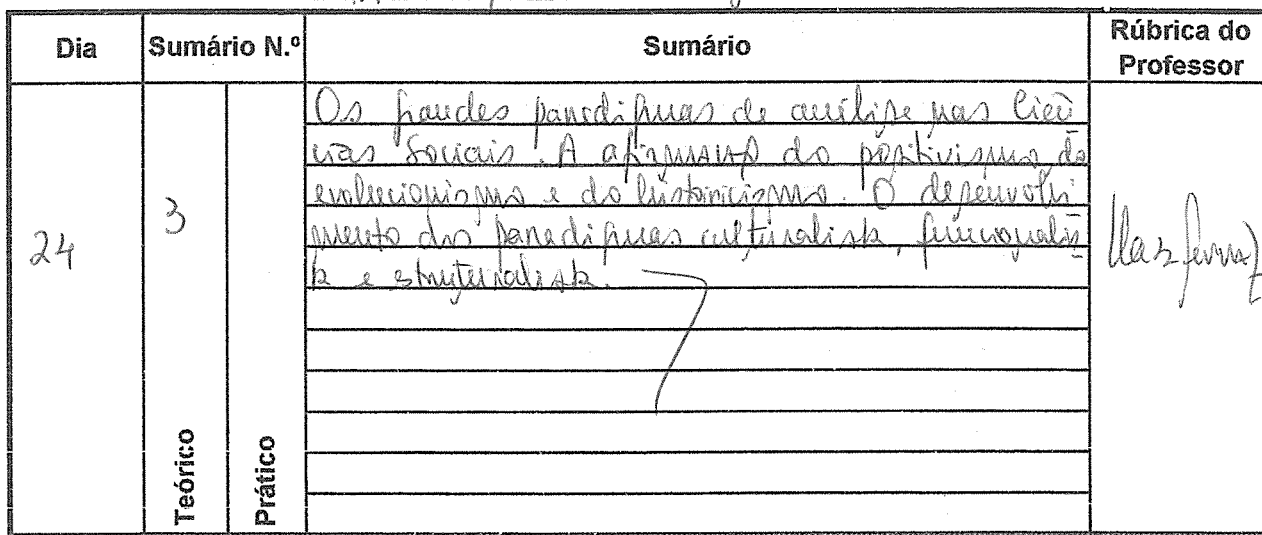 Dia Sumário N.º Sumário Rúbrica do Professor
24 3 Teórico Prático
Os grandes paradigmas de análise nas Ciên
cias Sociais. A afirmação do positivismo do
evolucionismo e do historicismo. O desenvolvi
mento dos paradigmas culturalista, funcionalis
ta e estruturalista.